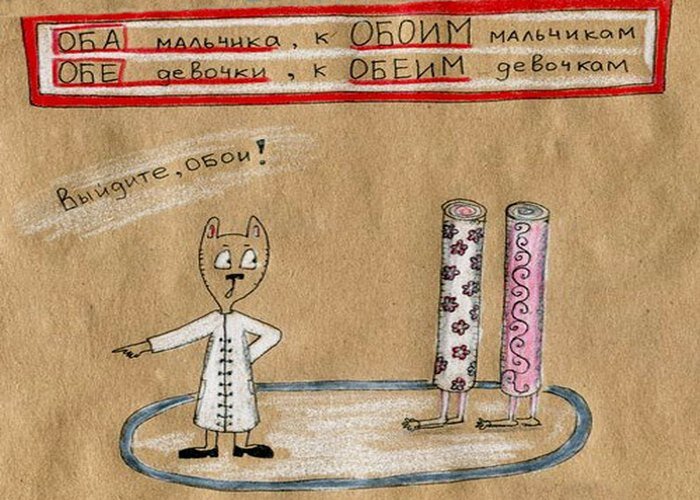 ОБА мальчика, к ОБОИМ мальчикам
ОБЕ девочки, к ОБЕИМ девочкам
Выйдите, обои!